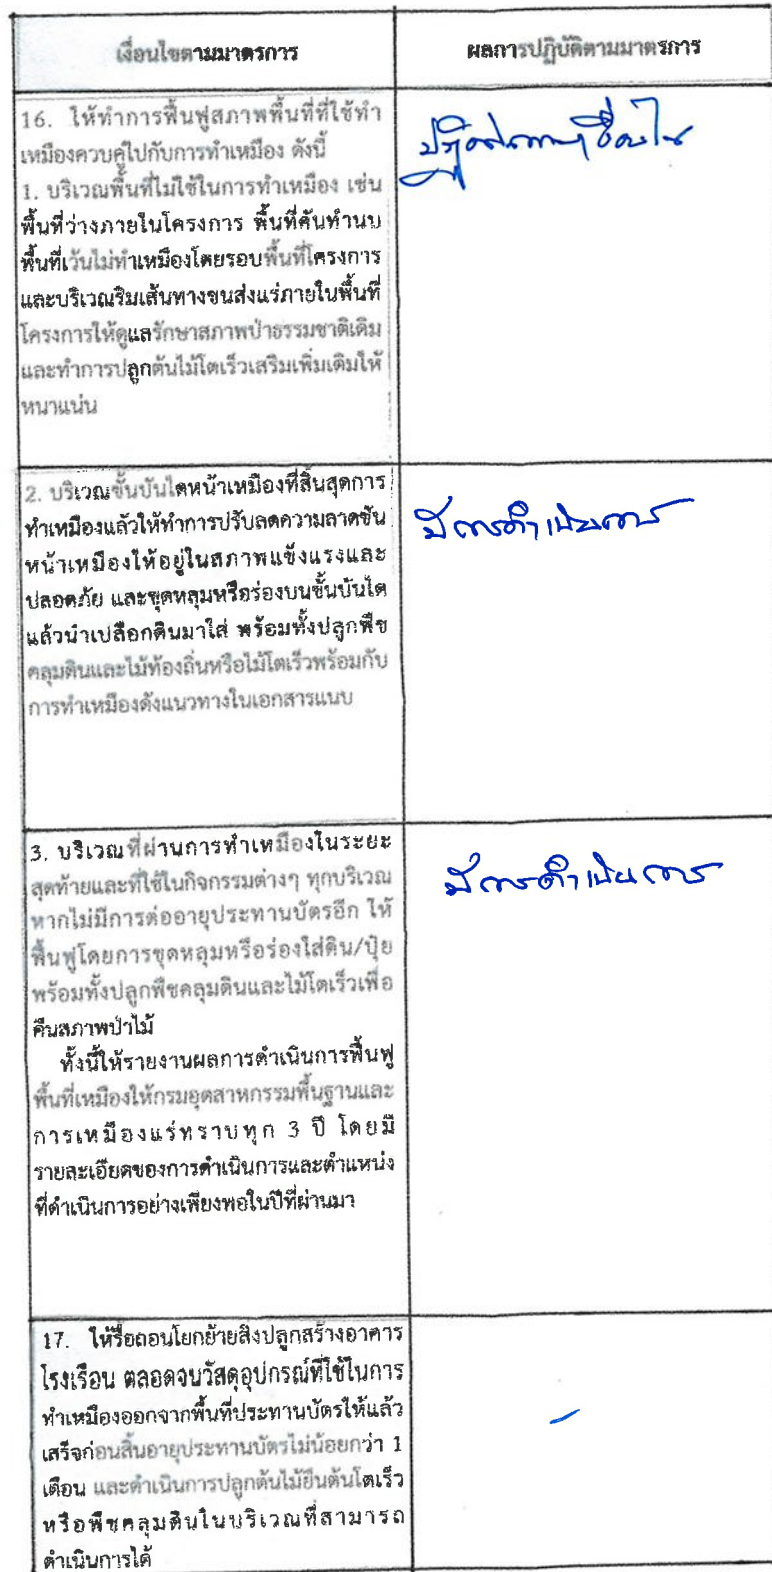 เงื่อนไขตามมาตรการ
ผลการปฏิบัติตามมาตรการ
16. ให้ทำการฟื้นฟูสภาพพื้นที่ที่ใช้ทำ
เหมืองควบคู่ไปกับการทำเหมือง ดังนี้
1. บริเวณพื้นที่ไม่ใช้ในการทำเหมือง เช่น
พื้นที่ว่างภายในโครงการ พื้นที่คันทำนบ
พื้นที่เว้นไม่ทำเหมืองโดยรอบพื้นที่โครงการ
และบริเวณริมเส้นทางขนส่งแร่ภายในพื้นที่
โครงการให้ดูแลรักษาสภาพป่าธรรมชาติเดิม
และทำการปลูกต้นไม้โตเร็วเสริมเพิ่มเติมให้
หนาแน่น
ปฏิบัติตามเงื่อนไข
2. บริเวณขั้นบันไดหน้าเหมืองที่สิ้นสุดการ
ทำเหมืองแล้วให้ทำการปรับลดความลาดชัน
หน้าเหมืองให้อยู่ในสภาพแข็งแรงและ
ปลอดภัย และขุดหลุมหรือร่องบนขั้นบันได
แล้วนำเปลือกดินมาใส่ พร้อมทั้งปลูกพืช
คลุมดินและไม้ท้องถิ่นหรือไม้โตเร็วพร้อมกับ
การทำเหมืองดังแนวทางในเอกสารแนบ
มีการดำเนินการ
3. บริเวณที่ผ่านการทำเหมืองในระยะ
สุดท้ายและที่ใช้ในกิจกรรมต่างๆ ทุกบริเวณ
หากไม่มีการต่ออายุประทานบัตรอีก ให้
ฟื้นฟูโดยการขุดหลุมหรือร่องใส่ดิน/ปุ๋ย
พร้อมทั้งปลูกพืชคลุมดินและไม้โตเร็วเพื่อ
คืนสภาพป่าไม้
ทั้งนี้ให้รายงานผลการดำเนินการฟื้นฟู
พื้นที่เหมืองให้กรมอุตสาหกรรมพื้นฐานและ
การเหมืองแร่ทราบทุก 3 ปี โดยมี
รายละเอียดของการดำเนินการและตำแหน่ง
ที่ดำเนินการอย่างเพียงพอในปีที่ผ่านมา
มีการดำเนินการ
17. ให้รื้อถอนโยกย้ายสิ่งปลูกสร้างอาคาร
โรงเรือน ตลอดจนวัสดุอุปกรณ์ที่ใช้ในการ
ทำเหมืองออกจากพื้นที่ประทานบัตรให้แล้ว
เสร็จก่อนสิ้นอายุประทานบัตรไม่น้อยกว่า 1
เดือน และดำเนินการปลูกต้นไม้ยืนต้นโตเร็ว
หรือพืชคลุมดินในบริเวณที่สามารถ
ดำเนินการได้
-